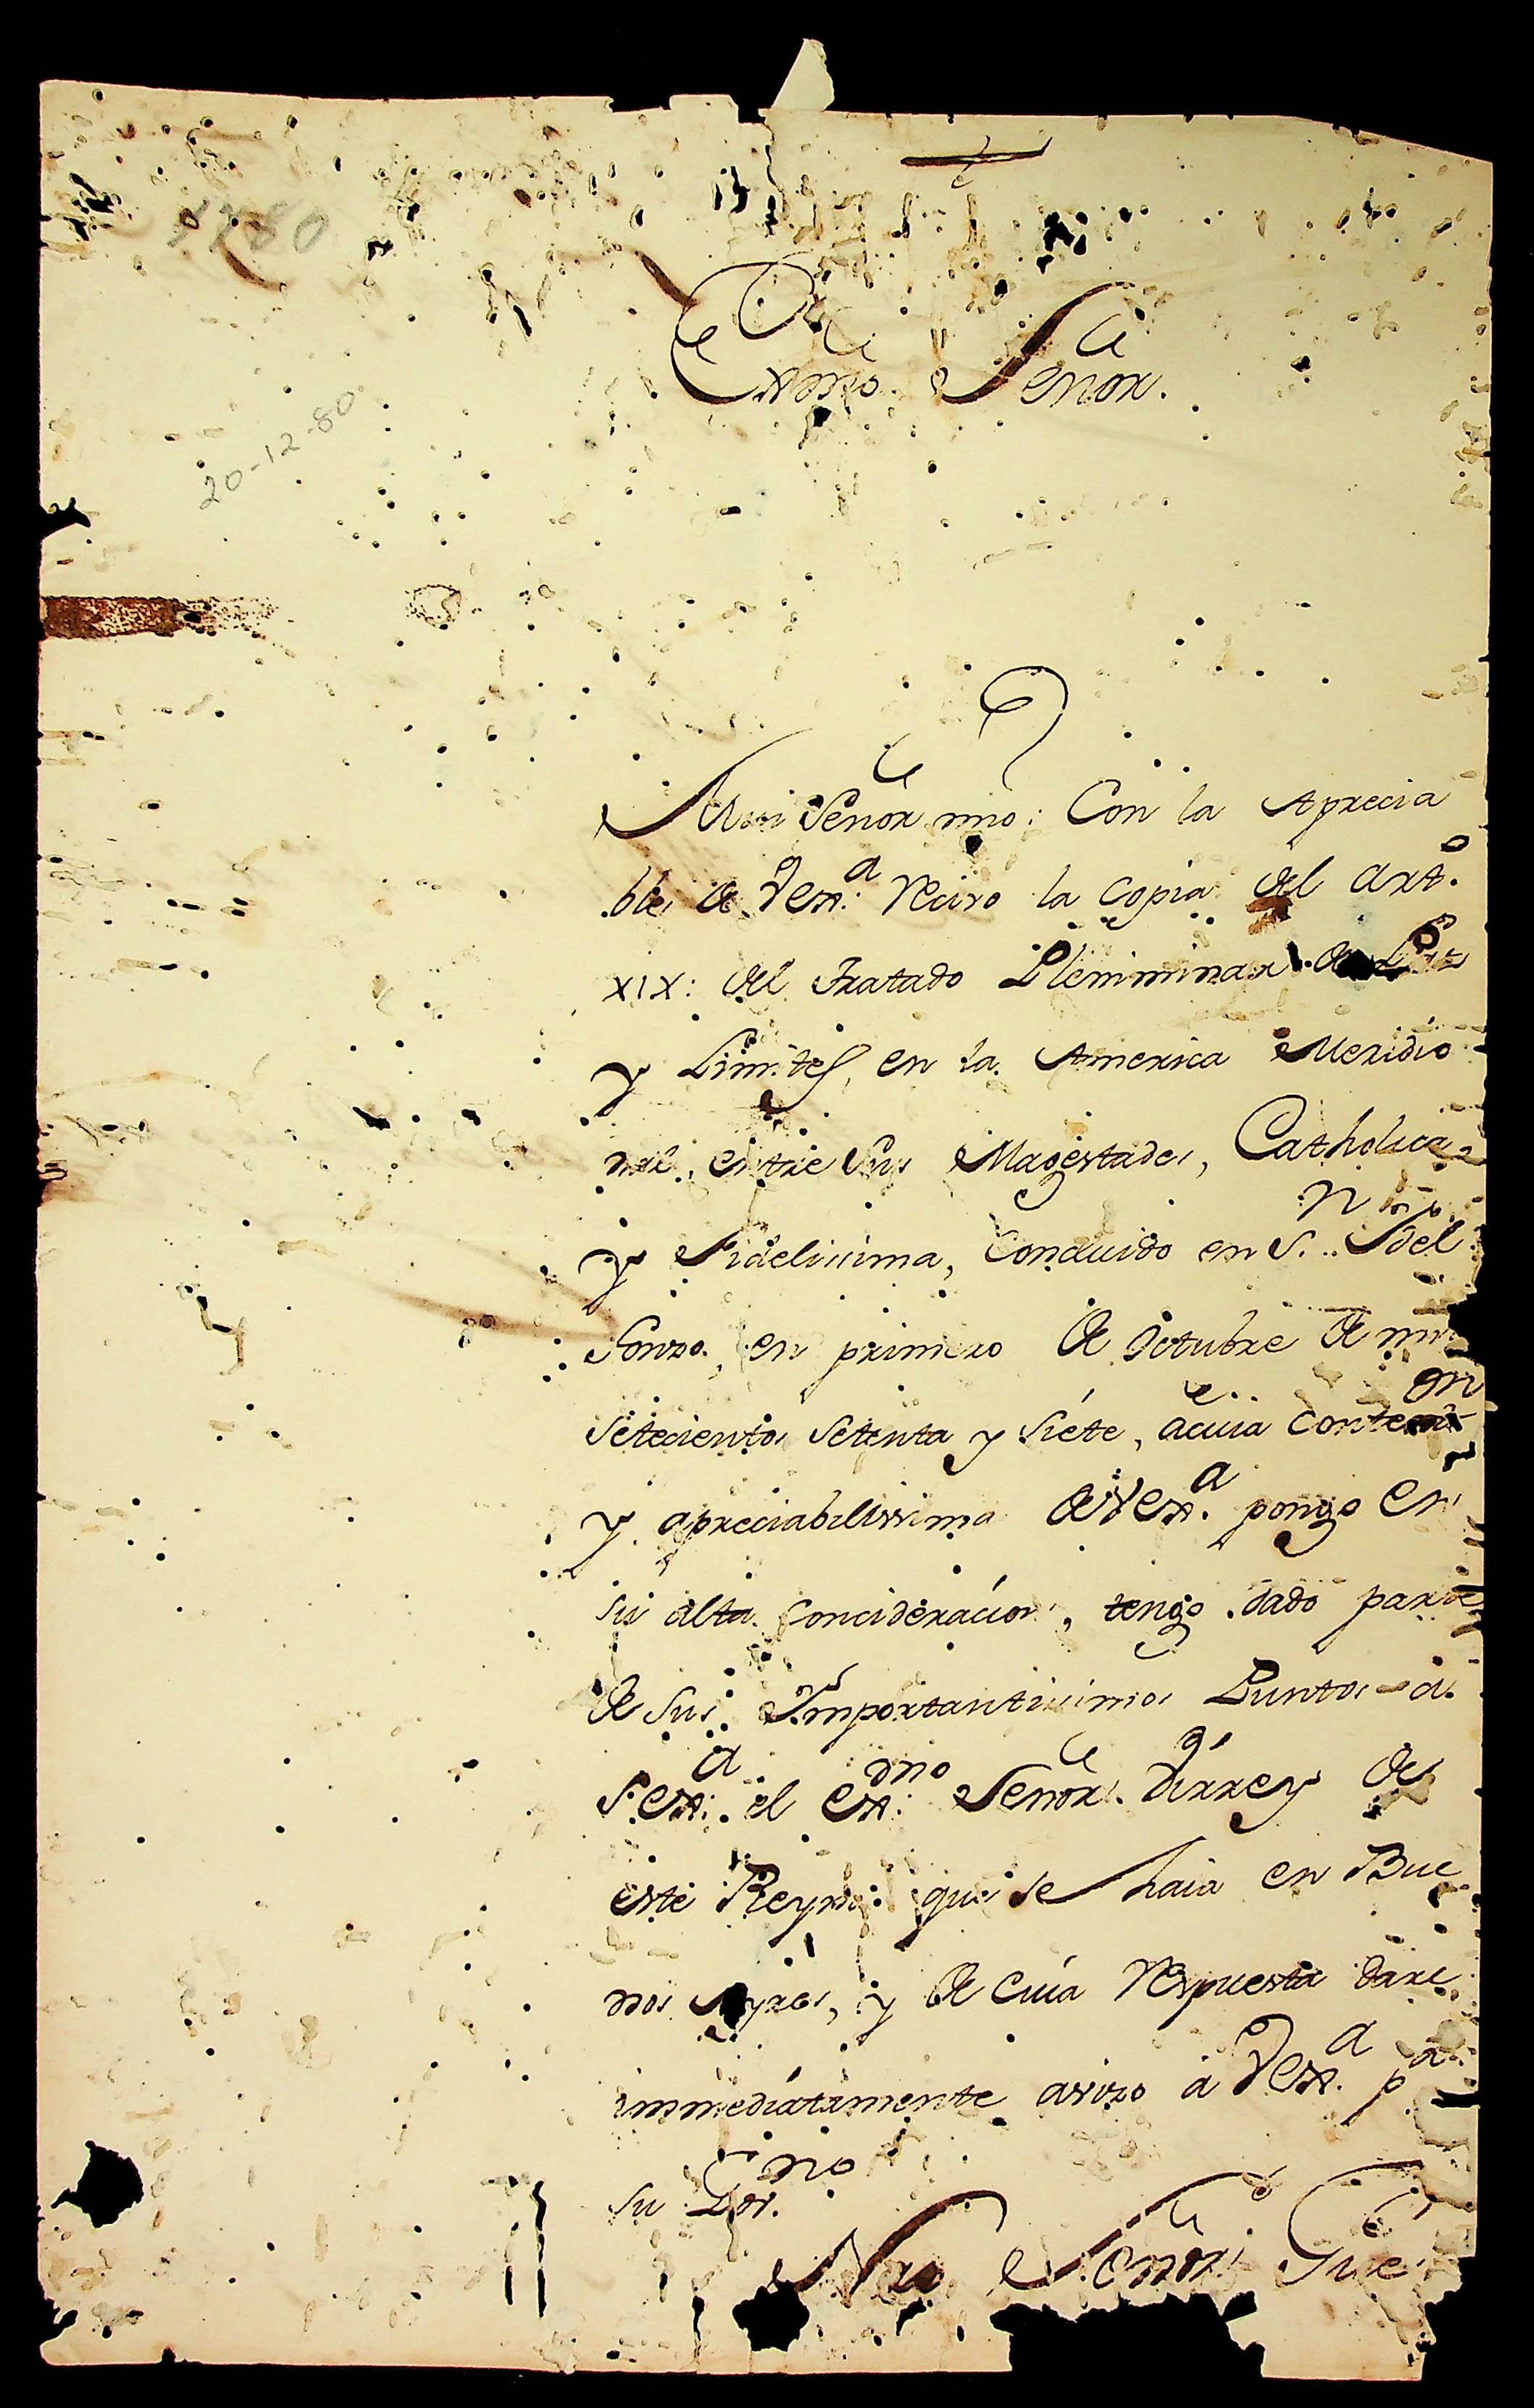 1780
20-12-80
Exmo. Señor.
Mui Señor mio: Con la Aprecia
ble de VEx.ª Recivo la Copia del Art.º
XIX: del Tratado Pleniminar de Paz
y Limites, en la America Meridio
nal, entre Sus Magestades, Catholica,
y Fidelissima, Concluido en S.n Ildel
fonzo, en primero de Octubre de mil
Setecientos Setenta y Siéte, acuia Conten.on
y apreciabilissima de VEx.ª pongo en
su alta Concideración, tengo dado parte
de sus Importantisimos Puntos a
S. Ex.ª el Ex.mo Señor Virrey de
este Reyno: que se haia en Bue
nos Ayres, y de Cuia Respuesta dare
immediatamente avizo a VEx.ª p.ª
su Gov.no
Nro Señor Gue